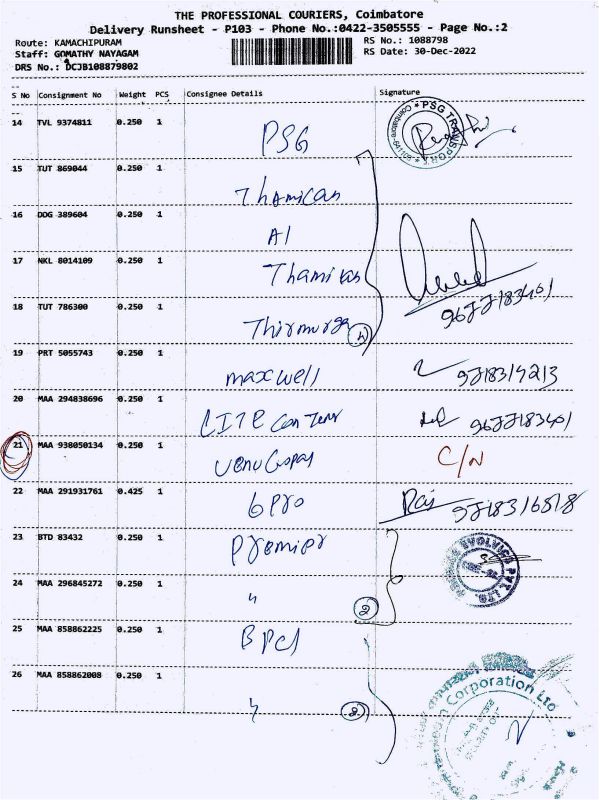 THE PROFESSIONAL COURIERS, Coimbatore
Delivery Runsheet - P103 - Phone No.:0422-3505555 - Page No.:2
Route: KAMACHIPURAM RS No.: 1088798
Staff: GOMATHY NAYAGAM RS Date: 30-Dec-2022
DRS No.: DCJB108879802
S No Consignment No Weight PCS Consignee Details Signature
14 TVL 9374811 0.250 1 PSG
PSG TRANSPORT
Coimbatore-641105
15 TUT 869044 0.250 1 Thamican
16 ODG 389604 0.250 1 Al
17 NKL 8014109 0.250 1 Thamikas
18 TUT 786300 0.250 1 Thirmurga 4
19 PRT 5055743 0.250 1 maxwell
20 MAA 294838696 0.250 1 LITE
21 MAA 938050134 0.250 1 Venu Gopal C/N
22 MAA 291931761 0.425 1 6 Pro Raj
23 BTD 83432 0.250 1 Premier
EVOLVICS PVT. LTD.
24 MAA 296845272 0.250 1 " 2
25 MAA 858862225 0.250 1 BPCL
26 MAA 858862008 0.250 1 " 2
Corporation Ltd